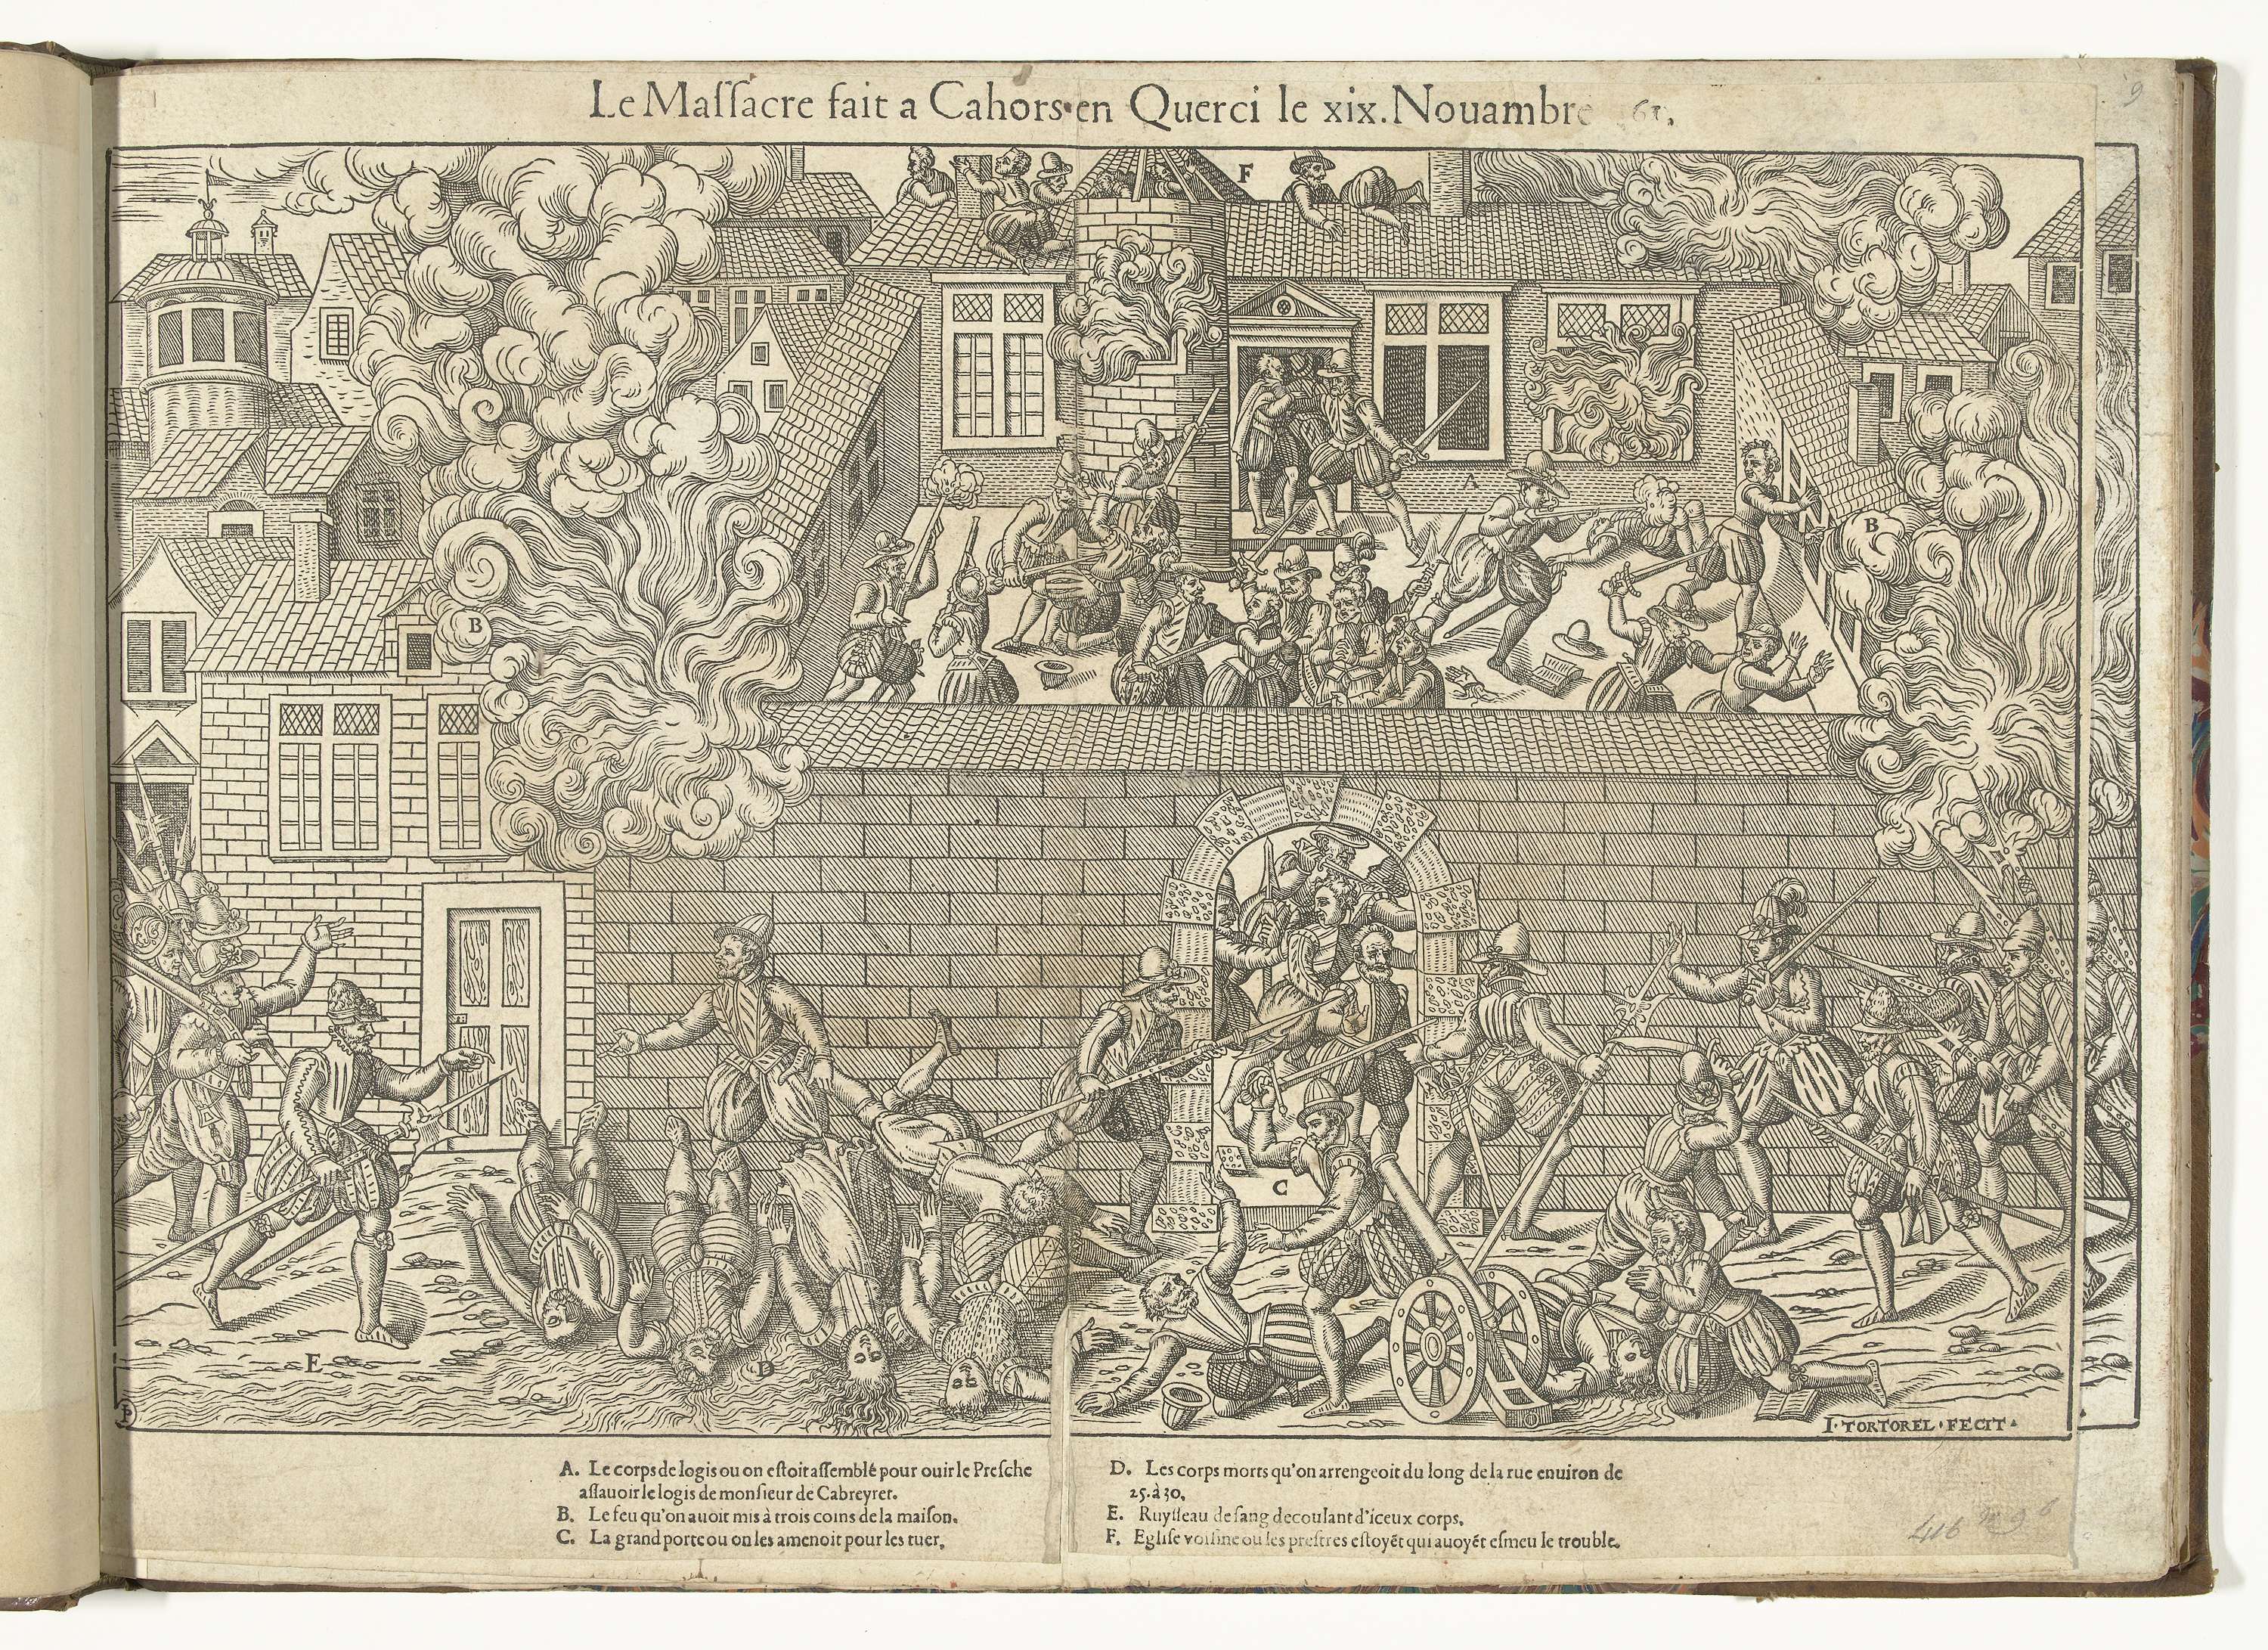 Le Maſſacre fait a Cahors en Querci le xix. Nouambre 61.
9
F
A
B
B
C
E
D
I·TORTOREL·FECIT·
A. Le corps de logis ou on eſtoit aſſemblé pour ouir le Preſche
aſſauoir le logis de monſieur de Cabreyret.
B. Le feu qu'on auoit mis à trois coins de la maiſon.
C. La grand porte ou on les amenoit pour les tuer.
D. Les corps morts qu'on arrengeoit du long de la rue enuiron de
25. à 30.
E. Ruyſſeau de ſang decoulant d'iceux corps.
F. Egliſe voiſine ou les preſtres eſtoyẽt qui auoyẽt eſmeu le trouble.
416